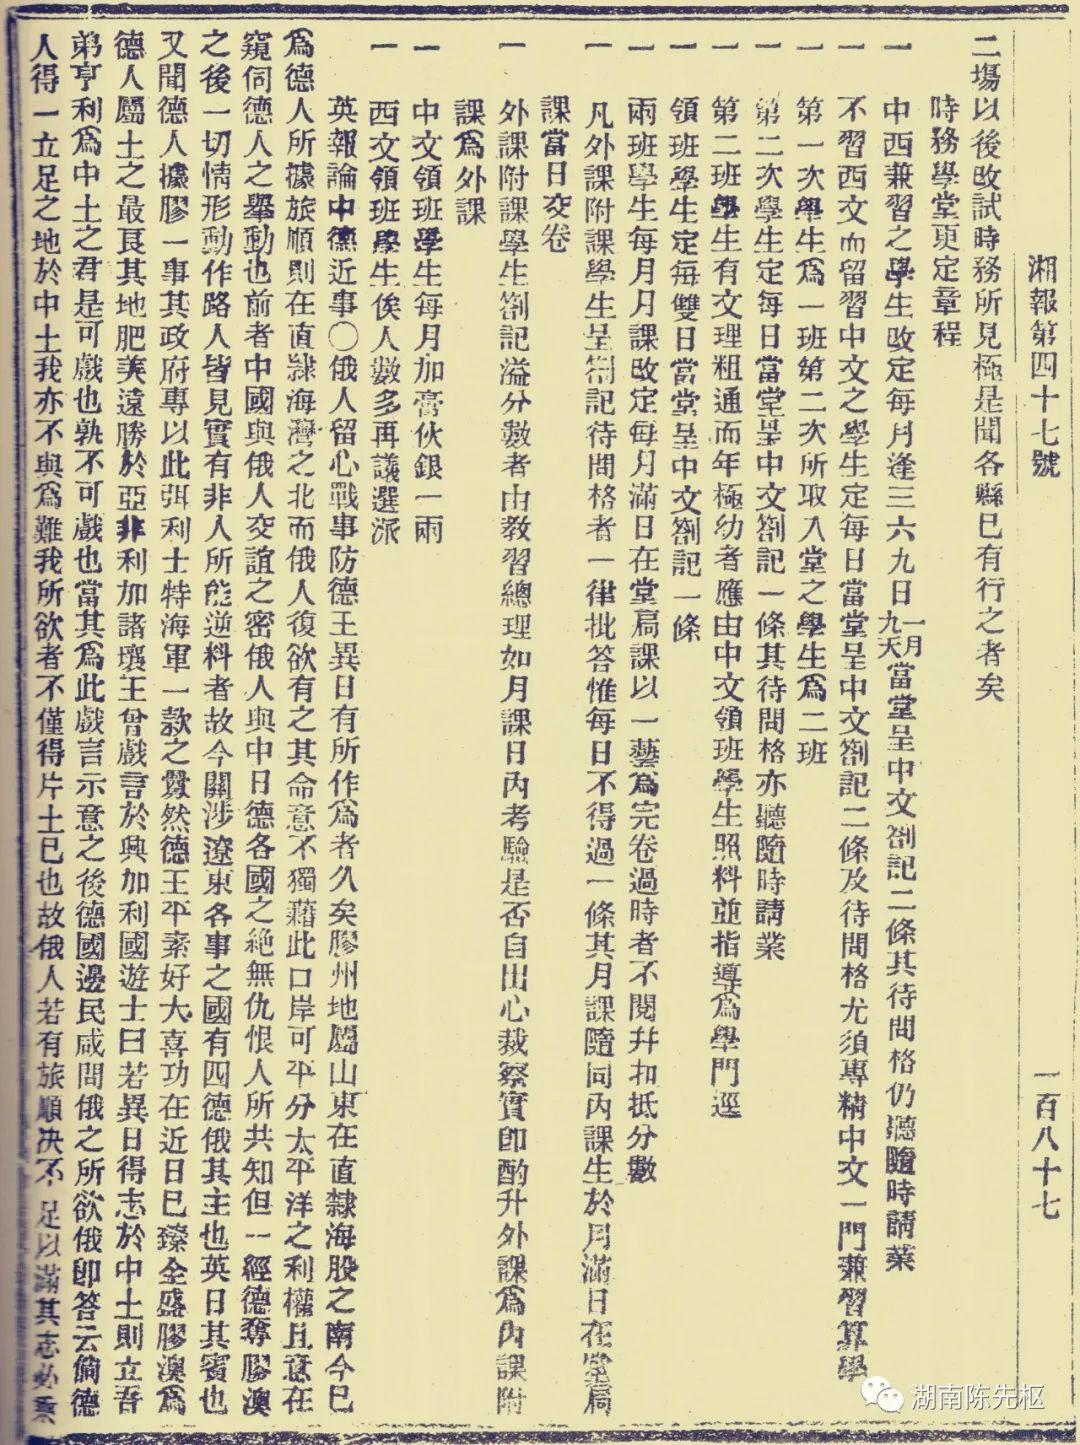 湘報第四十七號
一百八十七
二塲以後改試時務所見極是聞各縣已有行之者矣
時務學堂更定章程
一 中西兼習之學生改定每月逢三六九日一月九天當堂呈中文劄記二條其待問格仍聽隨時請業
一 不習西文而留習中文之學生定每日當堂呈中文劄記二條及待問格尤須專精中文一門兼習算學
一 第一次學生爲一班第二次所取入堂之學生爲二班
一 第二次學生定每日當堂呈中文劄記一條其待問格亦聽隨時請業
一 第二班學生有文理粗通而年極幼者應由中文領班學生照料並指導爲學門逕
一 領班學生定每雙日當堂呈中文劄記一條
一 兩班學生每月月課改定每月滿日在堂扃課以一藝爲完卷過時者不閱幷扣抵分數
一 凡外課附課學生呈劄記待問格者一律批答惟每日不得過一條其月課隨同內課生於月滿日在堂扃
課當日交卷
一 外課附課學生劄記溢分數者由教習總理如月課日內考驗是否自出心裁察實卽酌升外課爲內課附
課爲外課
一 中文領班學生每月加膏伙銀一兩
一 西文領班學生俟人數多再議選派
英報論中德近事〇俄人留心戰事防德王異日有所作爲者久矣膠州地屬山東在直隸海股之南今已
爲德人所據旅順則在直隸海灣之北而俄人復欲有之其命意不獨藉此口岸可平分太平洋之利權且意在
窺伺德人之舉動也前者中國與俄人交誼之密俄人與中日德各國之絶無仇恨人所共知但一經德奪膠澳
之後一切情形動作路人皆見實有非人所能逆料者故今關涉遼東各事之國有四德俄其主也英日其賓也
又聞德人據膠一事其政府專以此弭利士特海軍一款之釁然德王平素好大喜功在近日已臻全盛膠澳爲
德人屬土之最艮其地肥美遠勝於亞非利加諸壤王曾戲言於奧加利國遊士曰若異日得志於中土則立吾
弟亨利爲中土之君是可戲也孰不可戲也當其爲此戲言示意之後德國邊民咸問俄之所欲俄卽答云倘德
人得一立足之地於中土我亦不與爲難我所欲者不僅得片土已也故俄人若有旅順决不足以滿其志必乘
湖南陈先枢